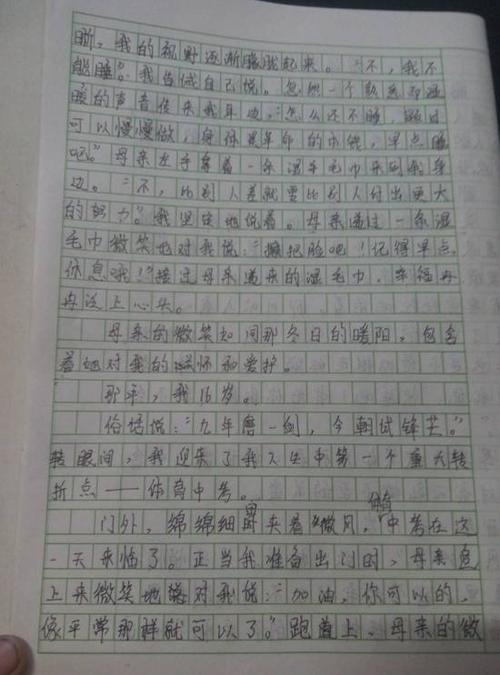 晰，我的视野逐渐朦胧起来。“不，我不
能睡”。我告诫自己说。忽然一个熟悉却温
暖的声音传来我耳边，“怎么还不睡，题目
可以慢慢做，身体是革命的本钱，早点睡
吧。”母亲左手拿着一条湿毛巾来到我身
边。“不，比别人差就要比别人付出更大
的努力”。我坚定地说着。母亲递过一条湿
毛巾微笑地对我说：“擦把脸吧！记得早点
休息哦！”接过母亲递来的湿毛巾，幸福再
再次上心头。
母亲的微笑如同那冬日的暖阳，包含
着她对我的关怀和爱护。
那年，我16岁。
俗话说：“九年磨一剑，今朝试锋芒。”
转眼间，我迎来了我人生中第一个重大转
折点——体育中考。
门外，绵绵细雨夹着微风，体育中考在这
一天来临了。正当我准备出门时，母亲追
上来微笑地对我说：“加油，你可以的，
像平常那样就可以了。”跑道上，母亲的微